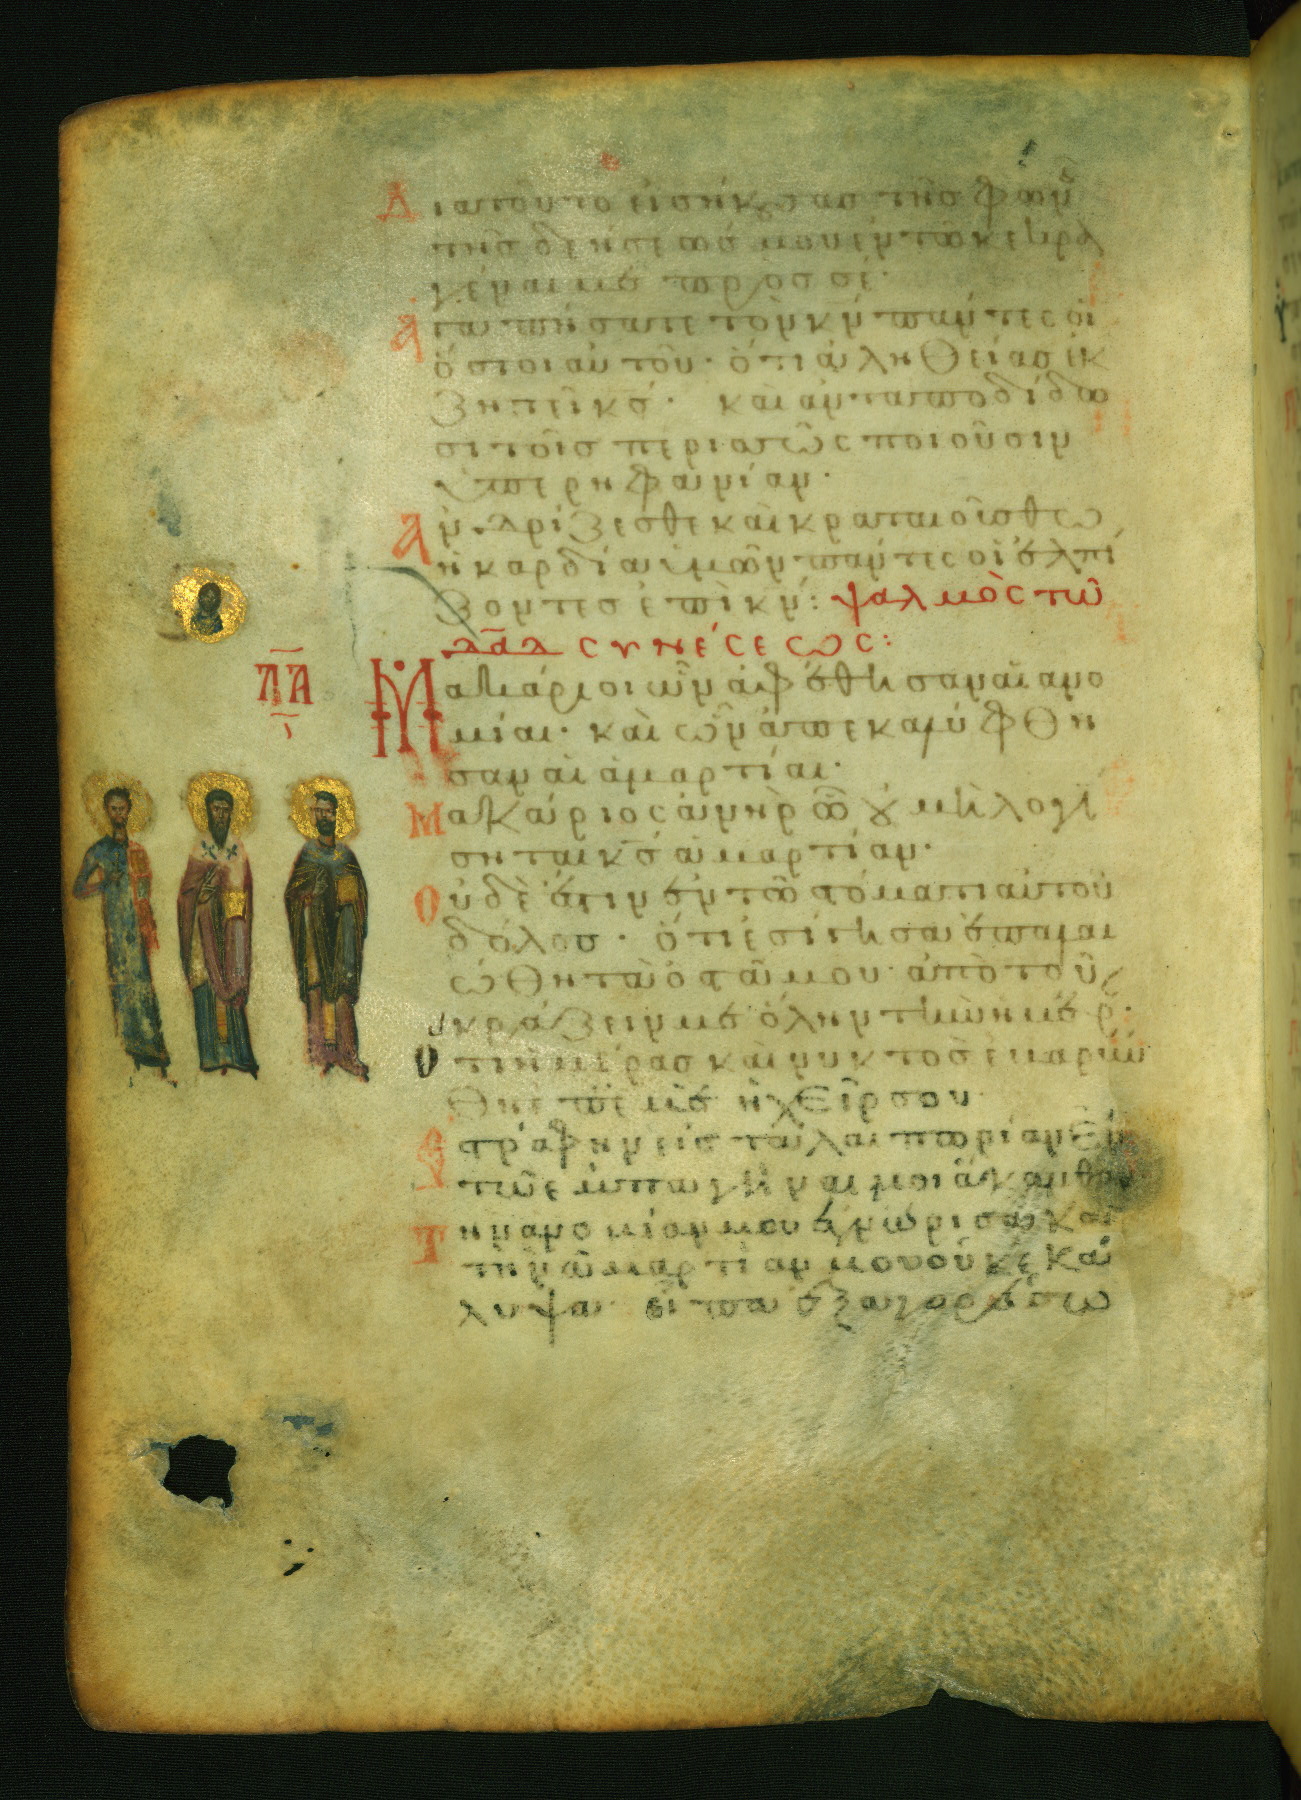 Διατοῦτο εἰσήκουσας τῆς φων
τῆς δεήσεώς μου ἐν τῶ κεκρα
γέναι με πρὸς σέ·
Ἀγαπήσατε τὸν κν πάντες οἱ
ὅσιοι αὐτοῦ· ὅτι ἀληθείας ἐκ
ζητεῖ κς· καὶ ἀνταποδίδω
σι τοῖς περισσῶς ποιοῦσιν
ὑπερηφανίαν·
Ἀνδρίζεσθε καὶ κραταιοῖσθω
ἡ καρδία ὑμῶν πάντες οἱ ἐλπί
ζοντες ἐπὶ κν: ψαλμὸς τῶ
δαδ συνέσεως:
ΛΑ
Μακάριοι ὧν ἀφέθησαν αἱ ανο
μίαι· καὶ ὧν ἀπεκαλύφθη
σαν αἱ ἁμαρτίαι·
Μακάριος ἀνὴρ ὧ οὐ μὴ λογί
σηται κς ἁμαρτίαν·
Οὐδὲ ἔστιν ἐν τῶ στόματι αὐτοῦ
δόλος· ὅτι ἐσίγησα ἐπαλαι
ώθη τὰ ὀστᾶ μου· ἀπὸ τοῦ
κράζειν με ὅλην τὴν ἡμέρ·
Ὅτι ἡμέρας καὶ νυκτὸς ἐβαρύν
θη ἐπ ἐμὲ ἡ χείρ σου·
Ἐστράφην εἰς ταλαιπωρίαν ἐν
τῶ ἐμπαγῆναι μοι ἄκανθαν
Τὴν ανομίαν μου ἐγνώρισα καὶ
τὴν ἁμαρτίαν μου οὐκ ἐκά
λυψα· εἶπα ἐξαγορεύσω